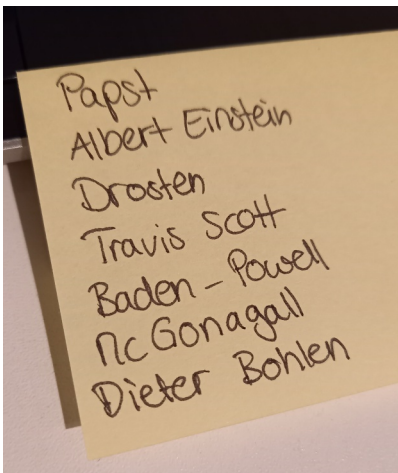 Papst
Albert Einstein
Drosten
Travis Scott
Baden-Powell
Mc Gonagall
Dieter Bohlen